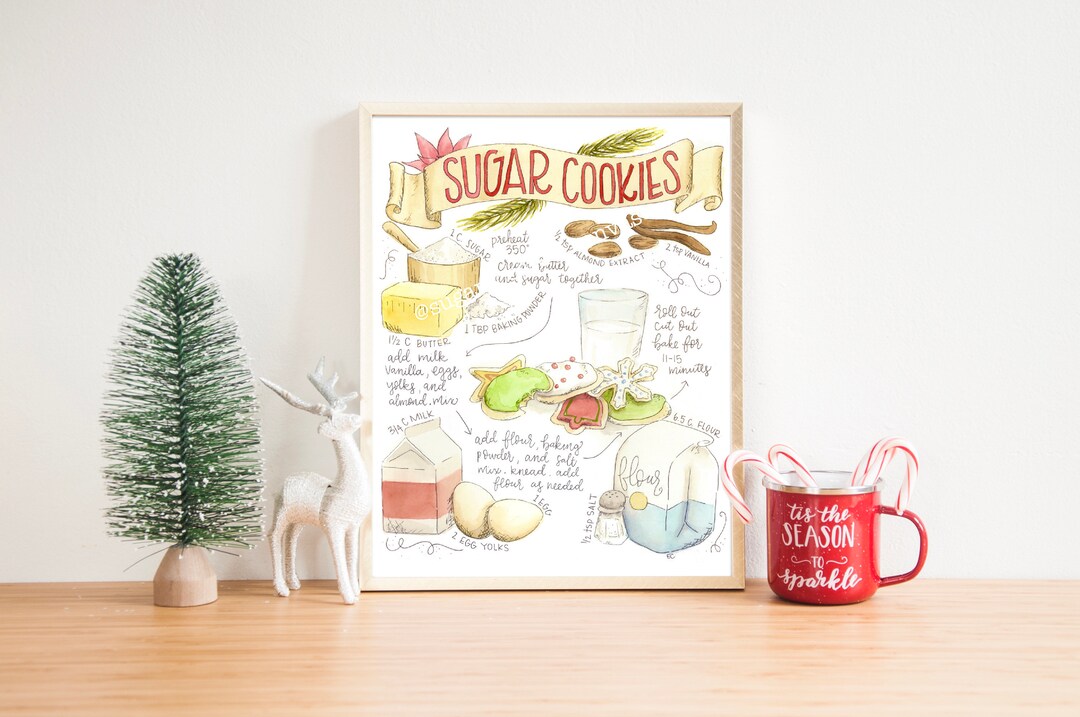 SUGAR COOKIES
1 C. SUGAR
preheat
350°
cream butter
and sugar together
1/2 tsp ALMOND EXTRACT
2 tsp VANILLA
1 TBP BAKING POWDER
1½ C BUTTER
add milk
vanilla, eggs,
yolks, and
almond. mix
roll out
cut out
bake for
11-15
minutes
3/4 C MILK
add flour, baking
powder, and salt
mix. knead. add
flour as needed
6.5 C. FLOUR
flour
1 EGG
2 EGG YOLKS
1/2 tsp SALT
tis the
SEASON
TO
sparkle